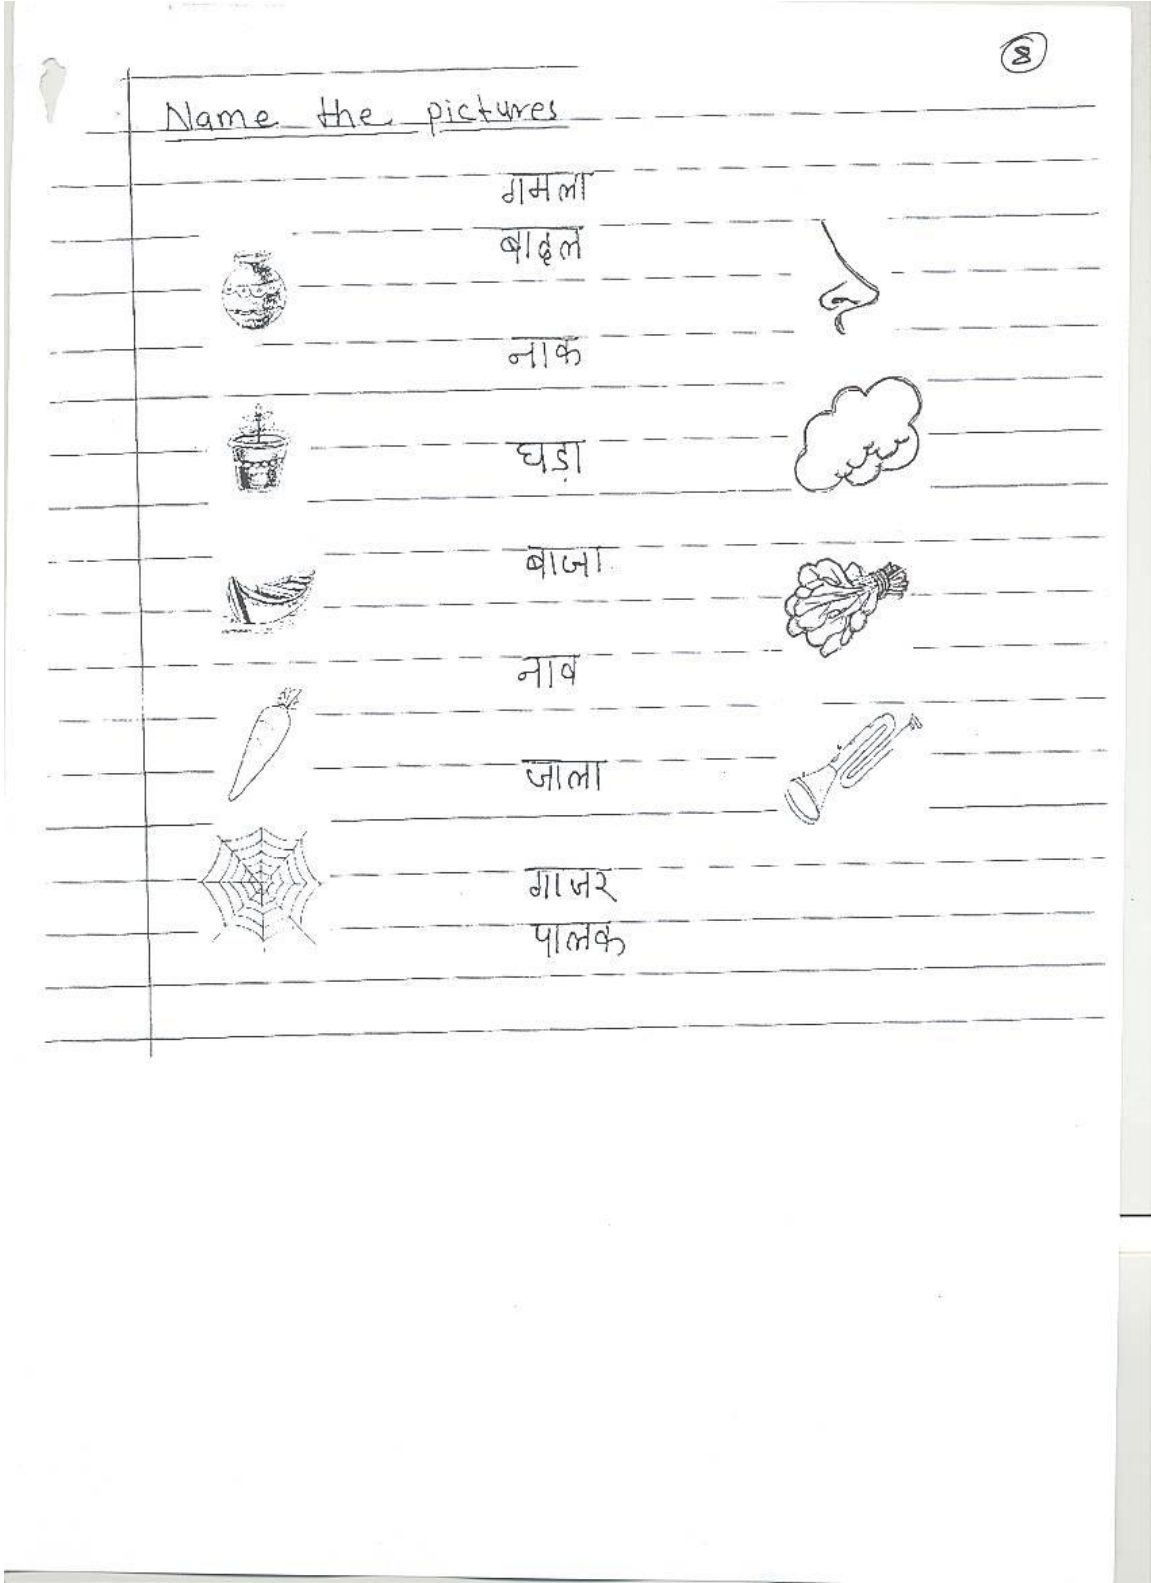 8
Name the pictures
गमला
बादल
नाक
घड़ा
बाजा
नाव
जाला
गाजर
पालक